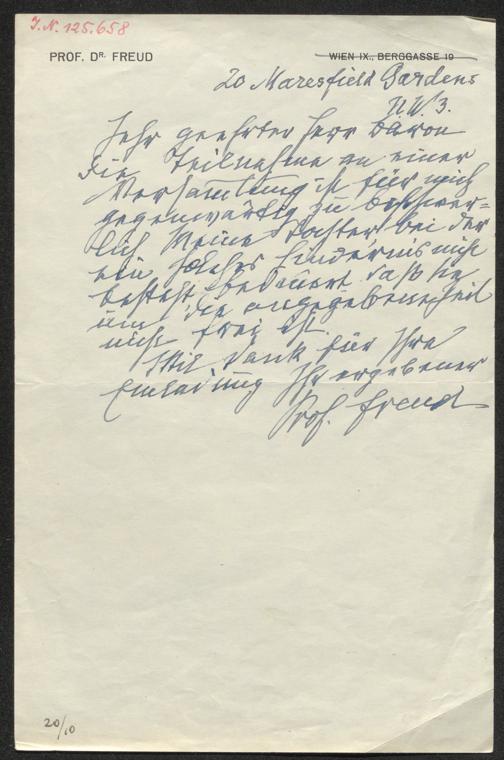 J.N. 125.658
PROF. DR. FREUD
WIEN IX., BERGGASSE 19
20 Maresfield Gardens
N.W.3.
Sehr geehrter Herr Baron
Die Teilnahme an einer
Versamlung ist für mich
gegenwärtig zu beschwer=
lich. Meine Tochter bei der
ein solches Hindernis nicht
besteht, bedauert daß sie
um die angegebene Zeit
nicht frei ist.
Mit Dank für Ihre
Einladung Ihr ergebener
Prof. Freud
20/10